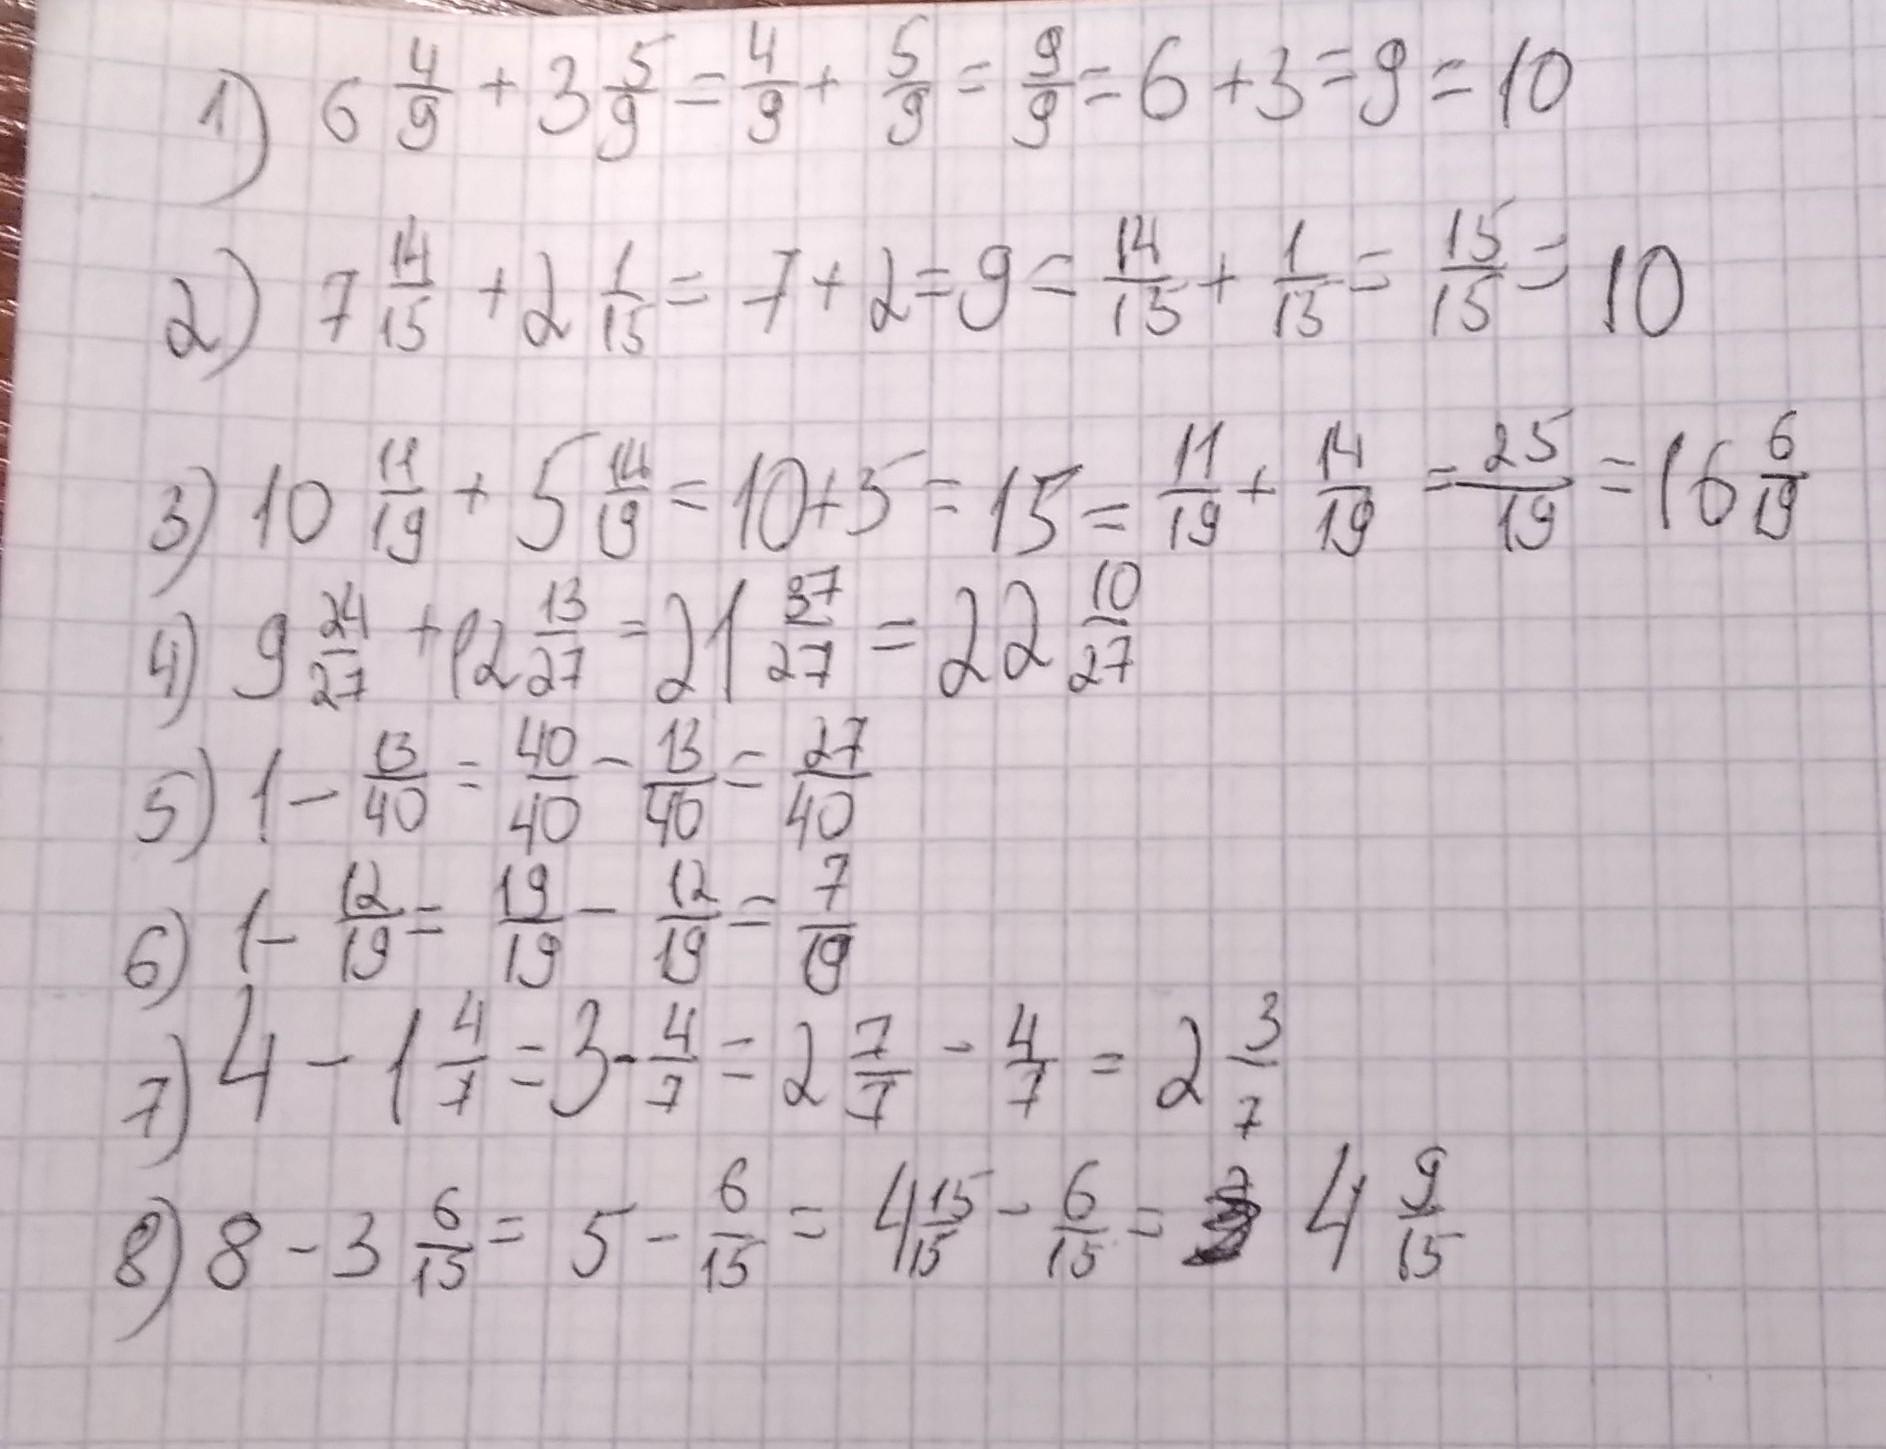 1) 6 4/9 + 3 5/9 = 4/9 + 5/9 = 9/9 = 6 + 3 = 9 = 10
2) 7 14/15 + 2 1/15 = 7 + 2 = 9 = 14/15 + 1/15 = 15/15 = 10
3) 10 11/19 + 5 14/19 = 10 + 5 = 15 = 11/19 + 14/19 = 25/19 = 16 6/19
4) 9 24/27 + 12 13/27 = 21 37/27 = 22 10/27
5) 1 - 13/40 = 40/40 - 13/40 = 27/40
6) 1 - 12/19 = 19/19 - 12/19 = 7/19
7) 4 - 1 4/7 = 3 - 4/7 = 2 7/7 - 4/7 = 2 3/7
8) 8 - 3 6/15 = 5 - 6/15 = 4 15/15 - 6/15 = 4 9/15